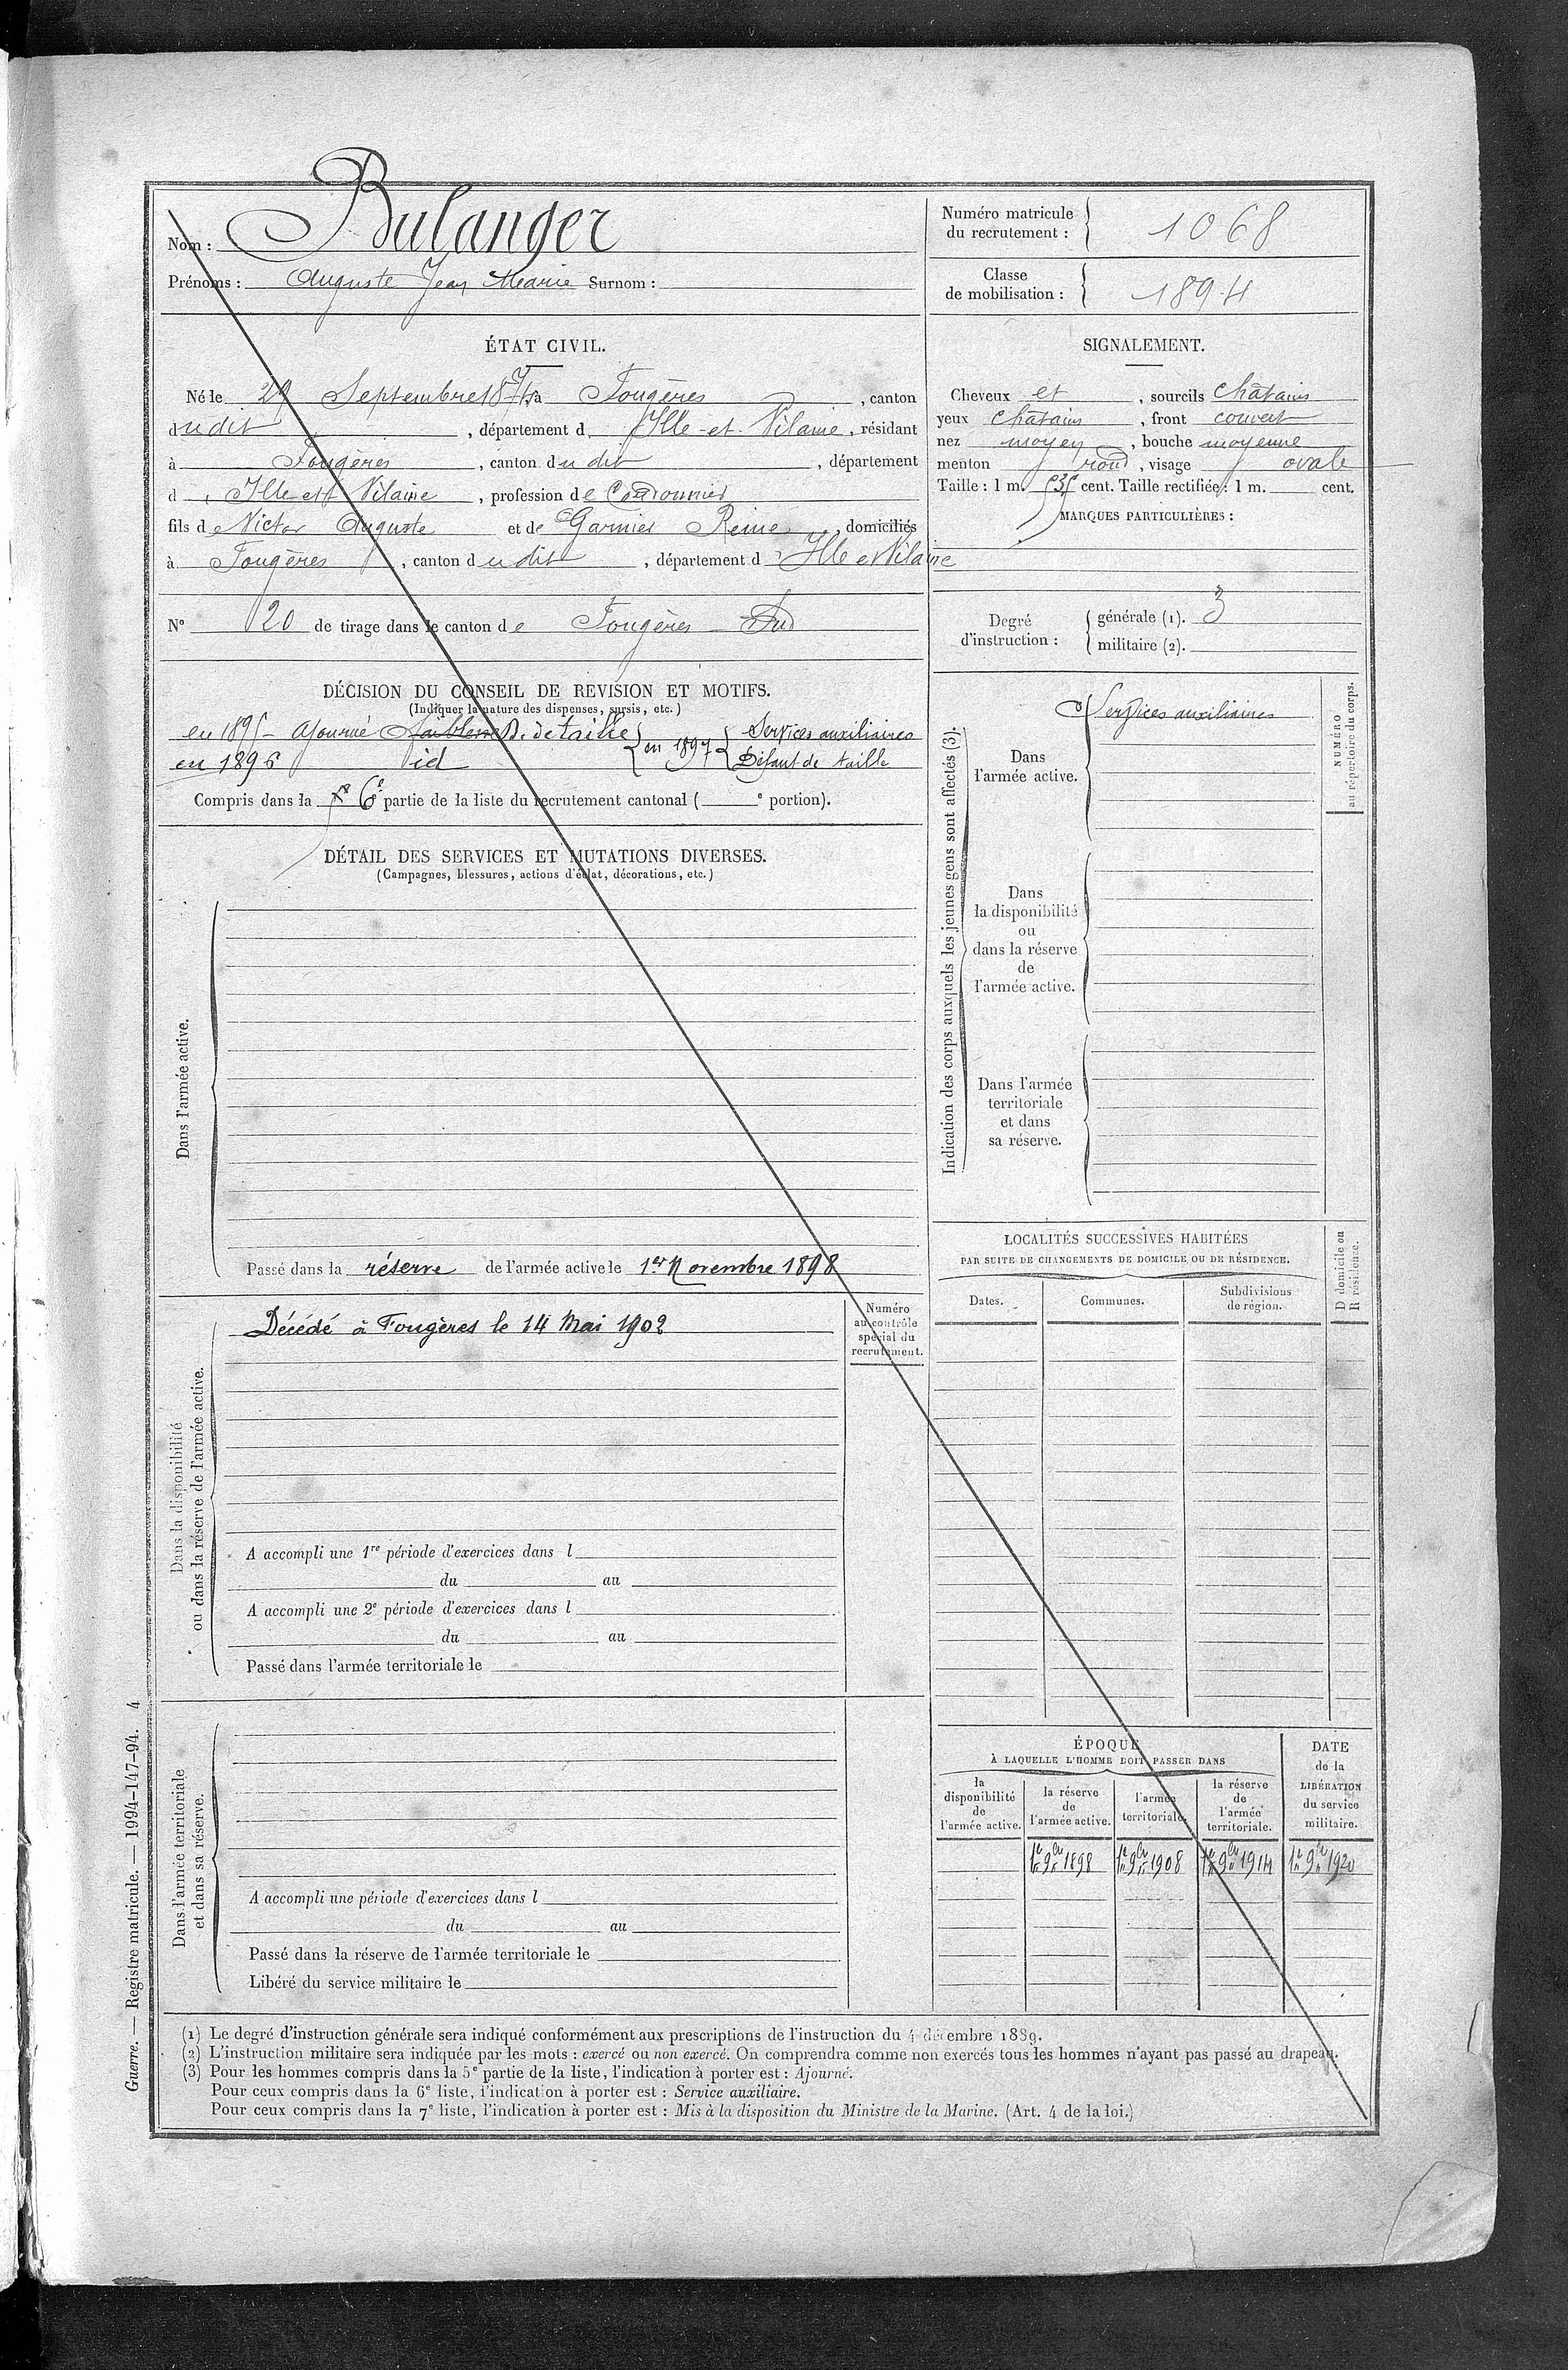 Nom : Bulanger
Prénoms : Auguste Jean Marie Surnom :
Numéro matricule du recrutement : 1068
Classe de mobilisation : 1894
ÉTAT CIVIL.
Né le 29 Septembre 187 à Fougères, canton
dudit, département d Ille-et-Vilaine, résidant
à Fougères, canton dudit, département
d Ille et Vilaine, profession de Cordonnier
fils de Victor Auguste et de Garnier Reine, domiciliés
à Fougères, canton dudit, département d Ille et Vilaine
N° 20 de tirage dans le canton de Fougères Sud
SIGNALEMENT.
Cheveux et, sourcils châtains
yeux châtains, front couvert
nez moyen, bouche moyenne
menton rond, visage ovale
Taille : 1 m. 53 cent. Taille rectifiée : 1 m. cent.
MARQUES PARTICULIÈRES :
Degré d'instruction :
générale (1). 3
militaire (2).
DÉCISION DU CONSEIL DE REVISION ET MOTIFS.
(Indiquer la nature des dispenses, sursis, etc.)
en 1895 ajourné Faiblesse D. de taille en 1897 Services auxiliaires
en 1896 id Défaut de taille
Compris dans la 6e partie de la liste du recrutement cantonal ( e portion).
DÉTAIL DES SERVICES ET MUTATIONS DIVERSES.
(Campagnes, blessures, actions d'éclat, décorations, etc.)
Dans l'armée active.
Passé dans la réserve de l'armée active le 1er Novembre 1898
Dans la disponibilité
ou dans la réserve de l'armée active.
Décédé à Fougères le 14 Mai 1902
Numéro
au contrôle
spécial du
recrutement.
A accompli une 1re période d'exercices dans l
du au
A accompli une 2e période d'exercices dans l
du au
Passé dans l'armée territoriale le
Dans l'armée territoriale
et dans sa réserve.
A accompli une période d'exercices dans l
du au
Passé dans la réserve de l'armée territoriale le
Libéré du service militaire le
Indication des corps auxquels les jeunes gens sont affectés (3).
Dans
l'armée active.
Services auxiliaires
NUMÉRO
au répertoire du corps.
Dans
la disponibilité
ou
dans la réserve
de
l'armée active.
Dans l'armée
territoriale
et dans
sa réserve.
LOCALITÉS SUCCESSIVES HABITÉES
PAR SUITE DE CHANGEMENTS DE DOMICILE OU DE RÉSIDENCE.
Dates. Communes. Subdivisions de région.
D domicile ou
R résidence.
ÉPOQUE
À LAQUELLE L'HOMME DOIT PASSER DANS
la
disponibilité
de
l'armée active.
la réserve
de
l'armée active.
l'armée
territoriale.
la réserve
de
l'armée
territoriale.
DATE
de la
LIBÉRATION
du service
militaire.
1er 9bre 1898 1er 9bre 1908 1er 9bre 1914 1er 9bre 1920
(1) Le degré d'instruction générale sera indiqué conformément aux prescriptions de l'instruction du 4 décembre 1889.
(2) L'instruction militaire sera indiquée par les mots : exercé ou non exercé. On comprendra comme non exercés tous les hommes n'ayant pas passé au drapeau.
(3) Pour les hommes compris dans la 5e partie de la liste, l'indication à porter est : Ajourné.
Pour ceux compris dans la 6e liste, l'indication à porter est : Service auxiliaire.
Pour ceux compris dans la 7e liste, l'indication à porter est : Mis à la disposition du Ministre de la Marine. (Art. 4 de la loi.)
Guerre. — Registre matricule. — 1994-147-94. 4